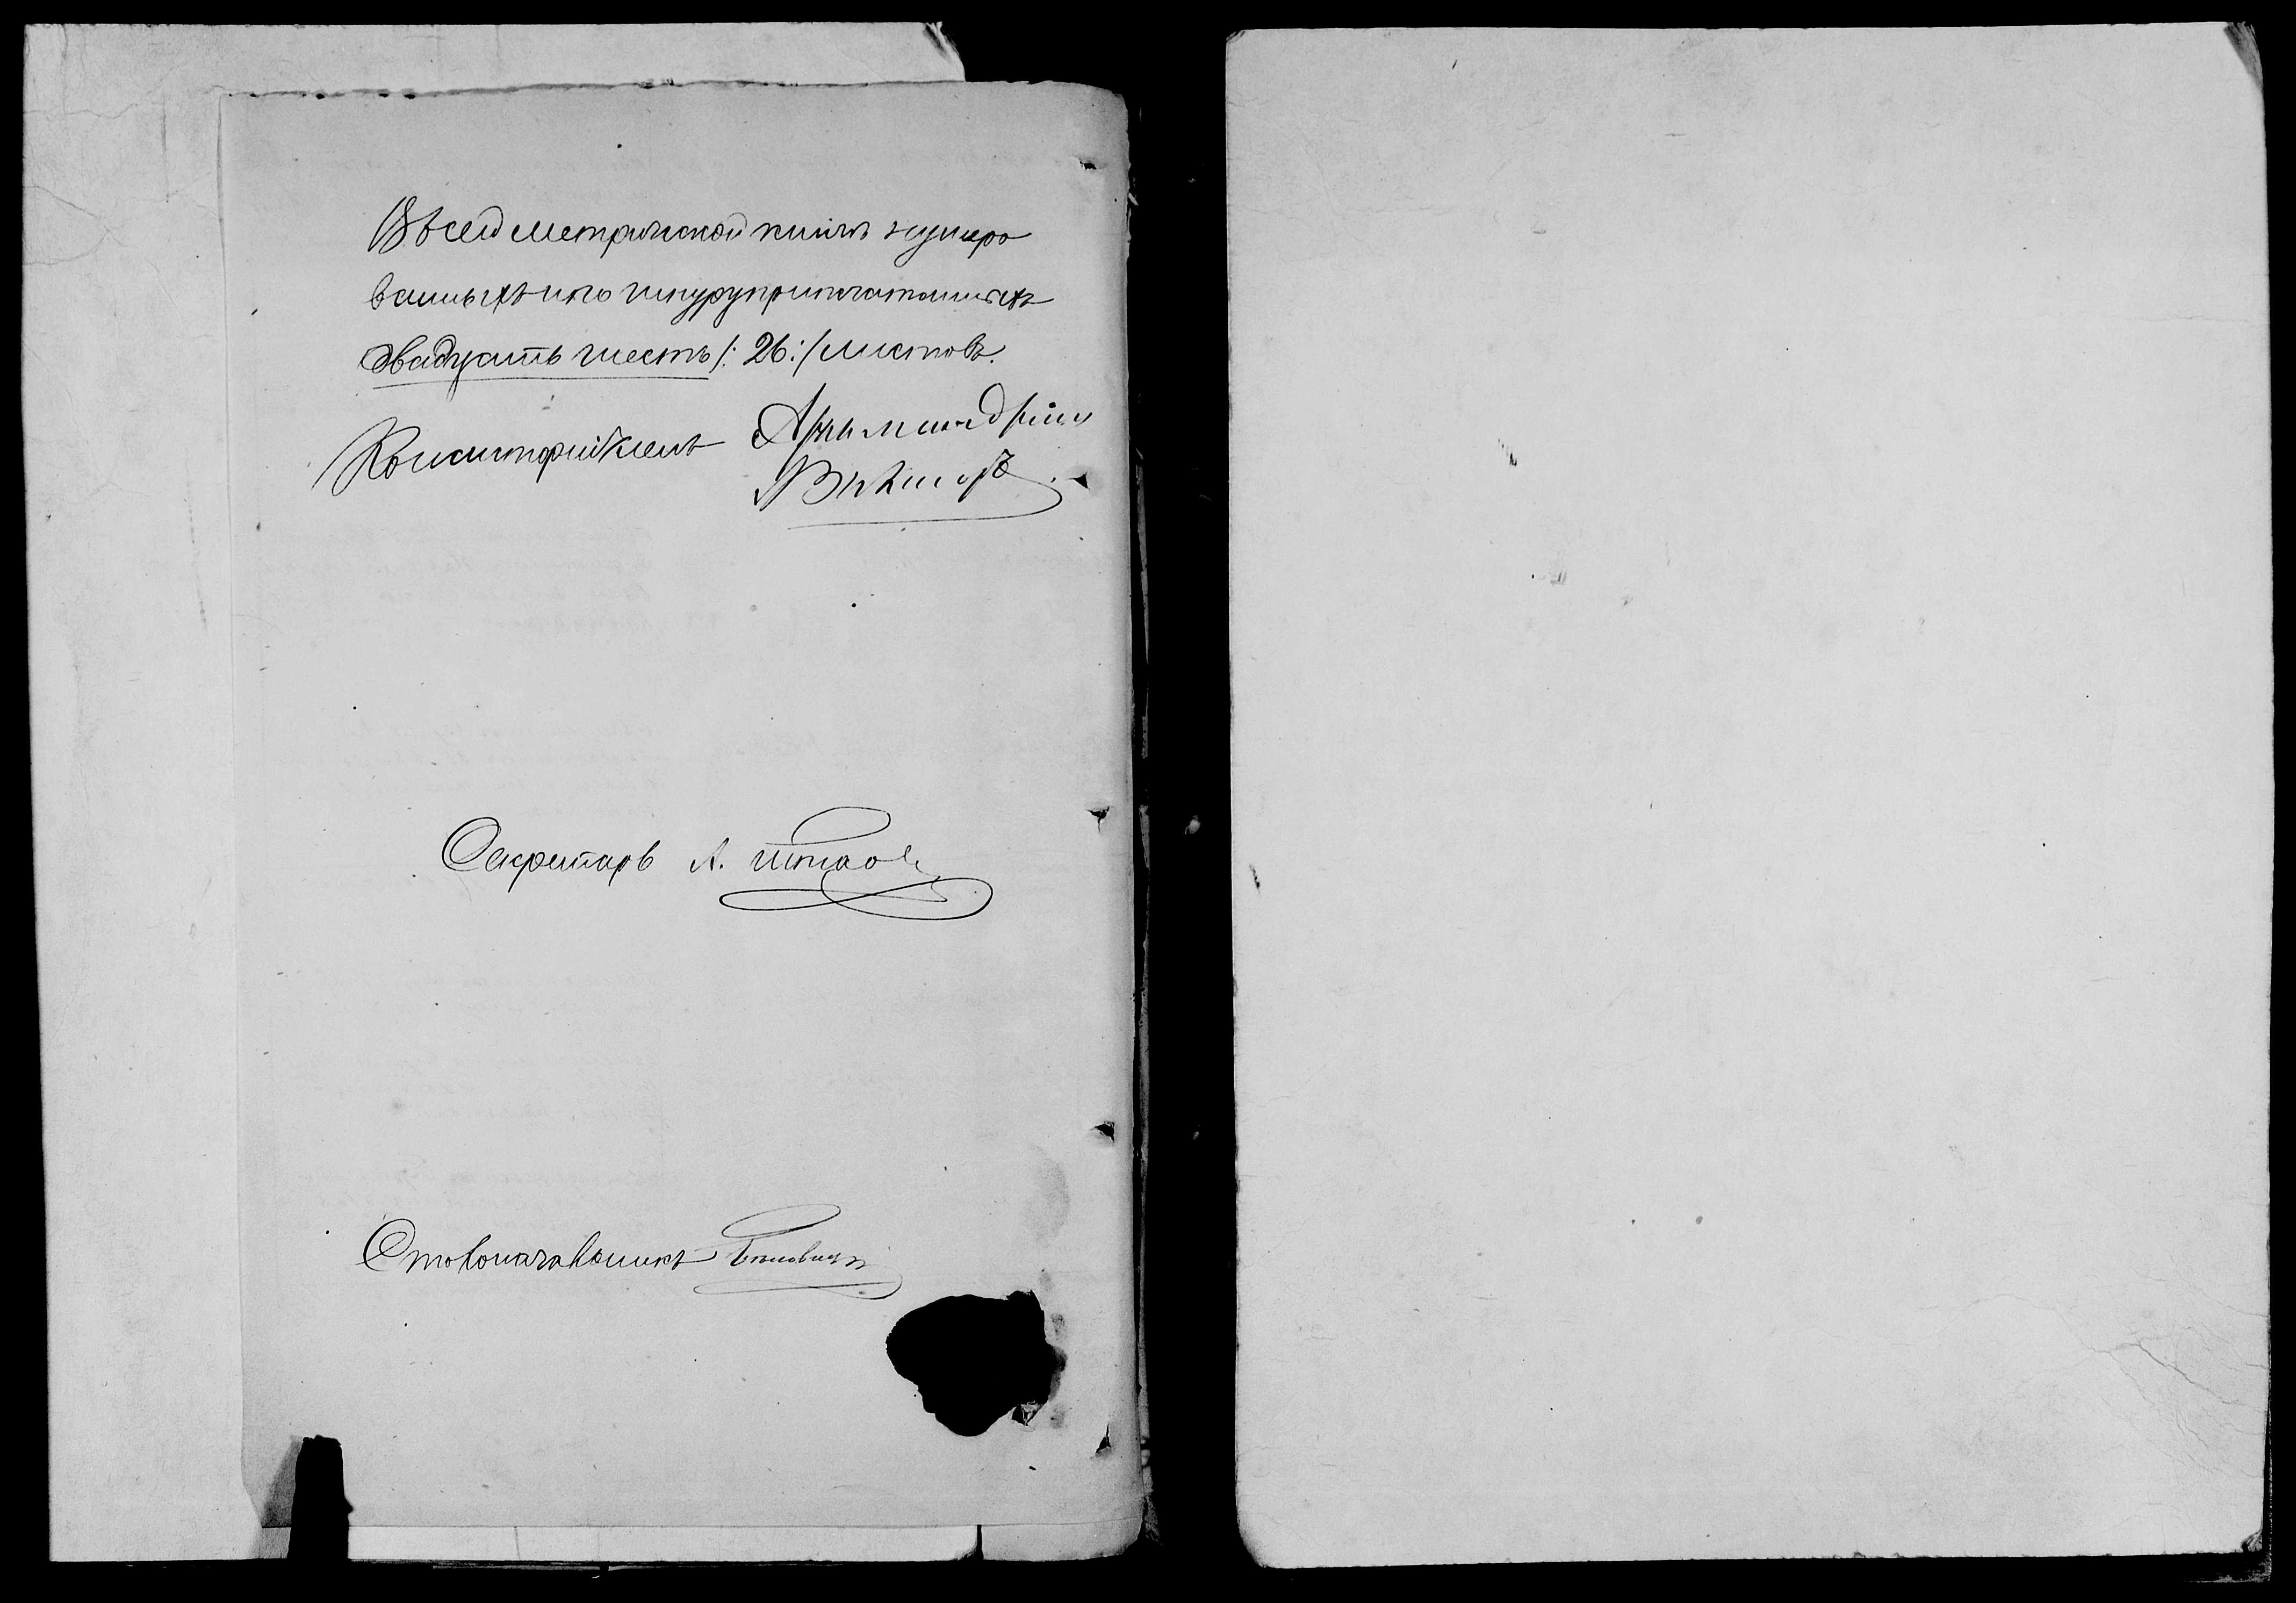 Въ сей метрической книгѣ нумеро
ванныхъ и къ шнуру припечатанныхъ
двадцать шесть /: 26 :/ листовъ.
Консисторіи Членъ Архимандритъ
Викторъ
Секретарь А.
Столоначальникъ